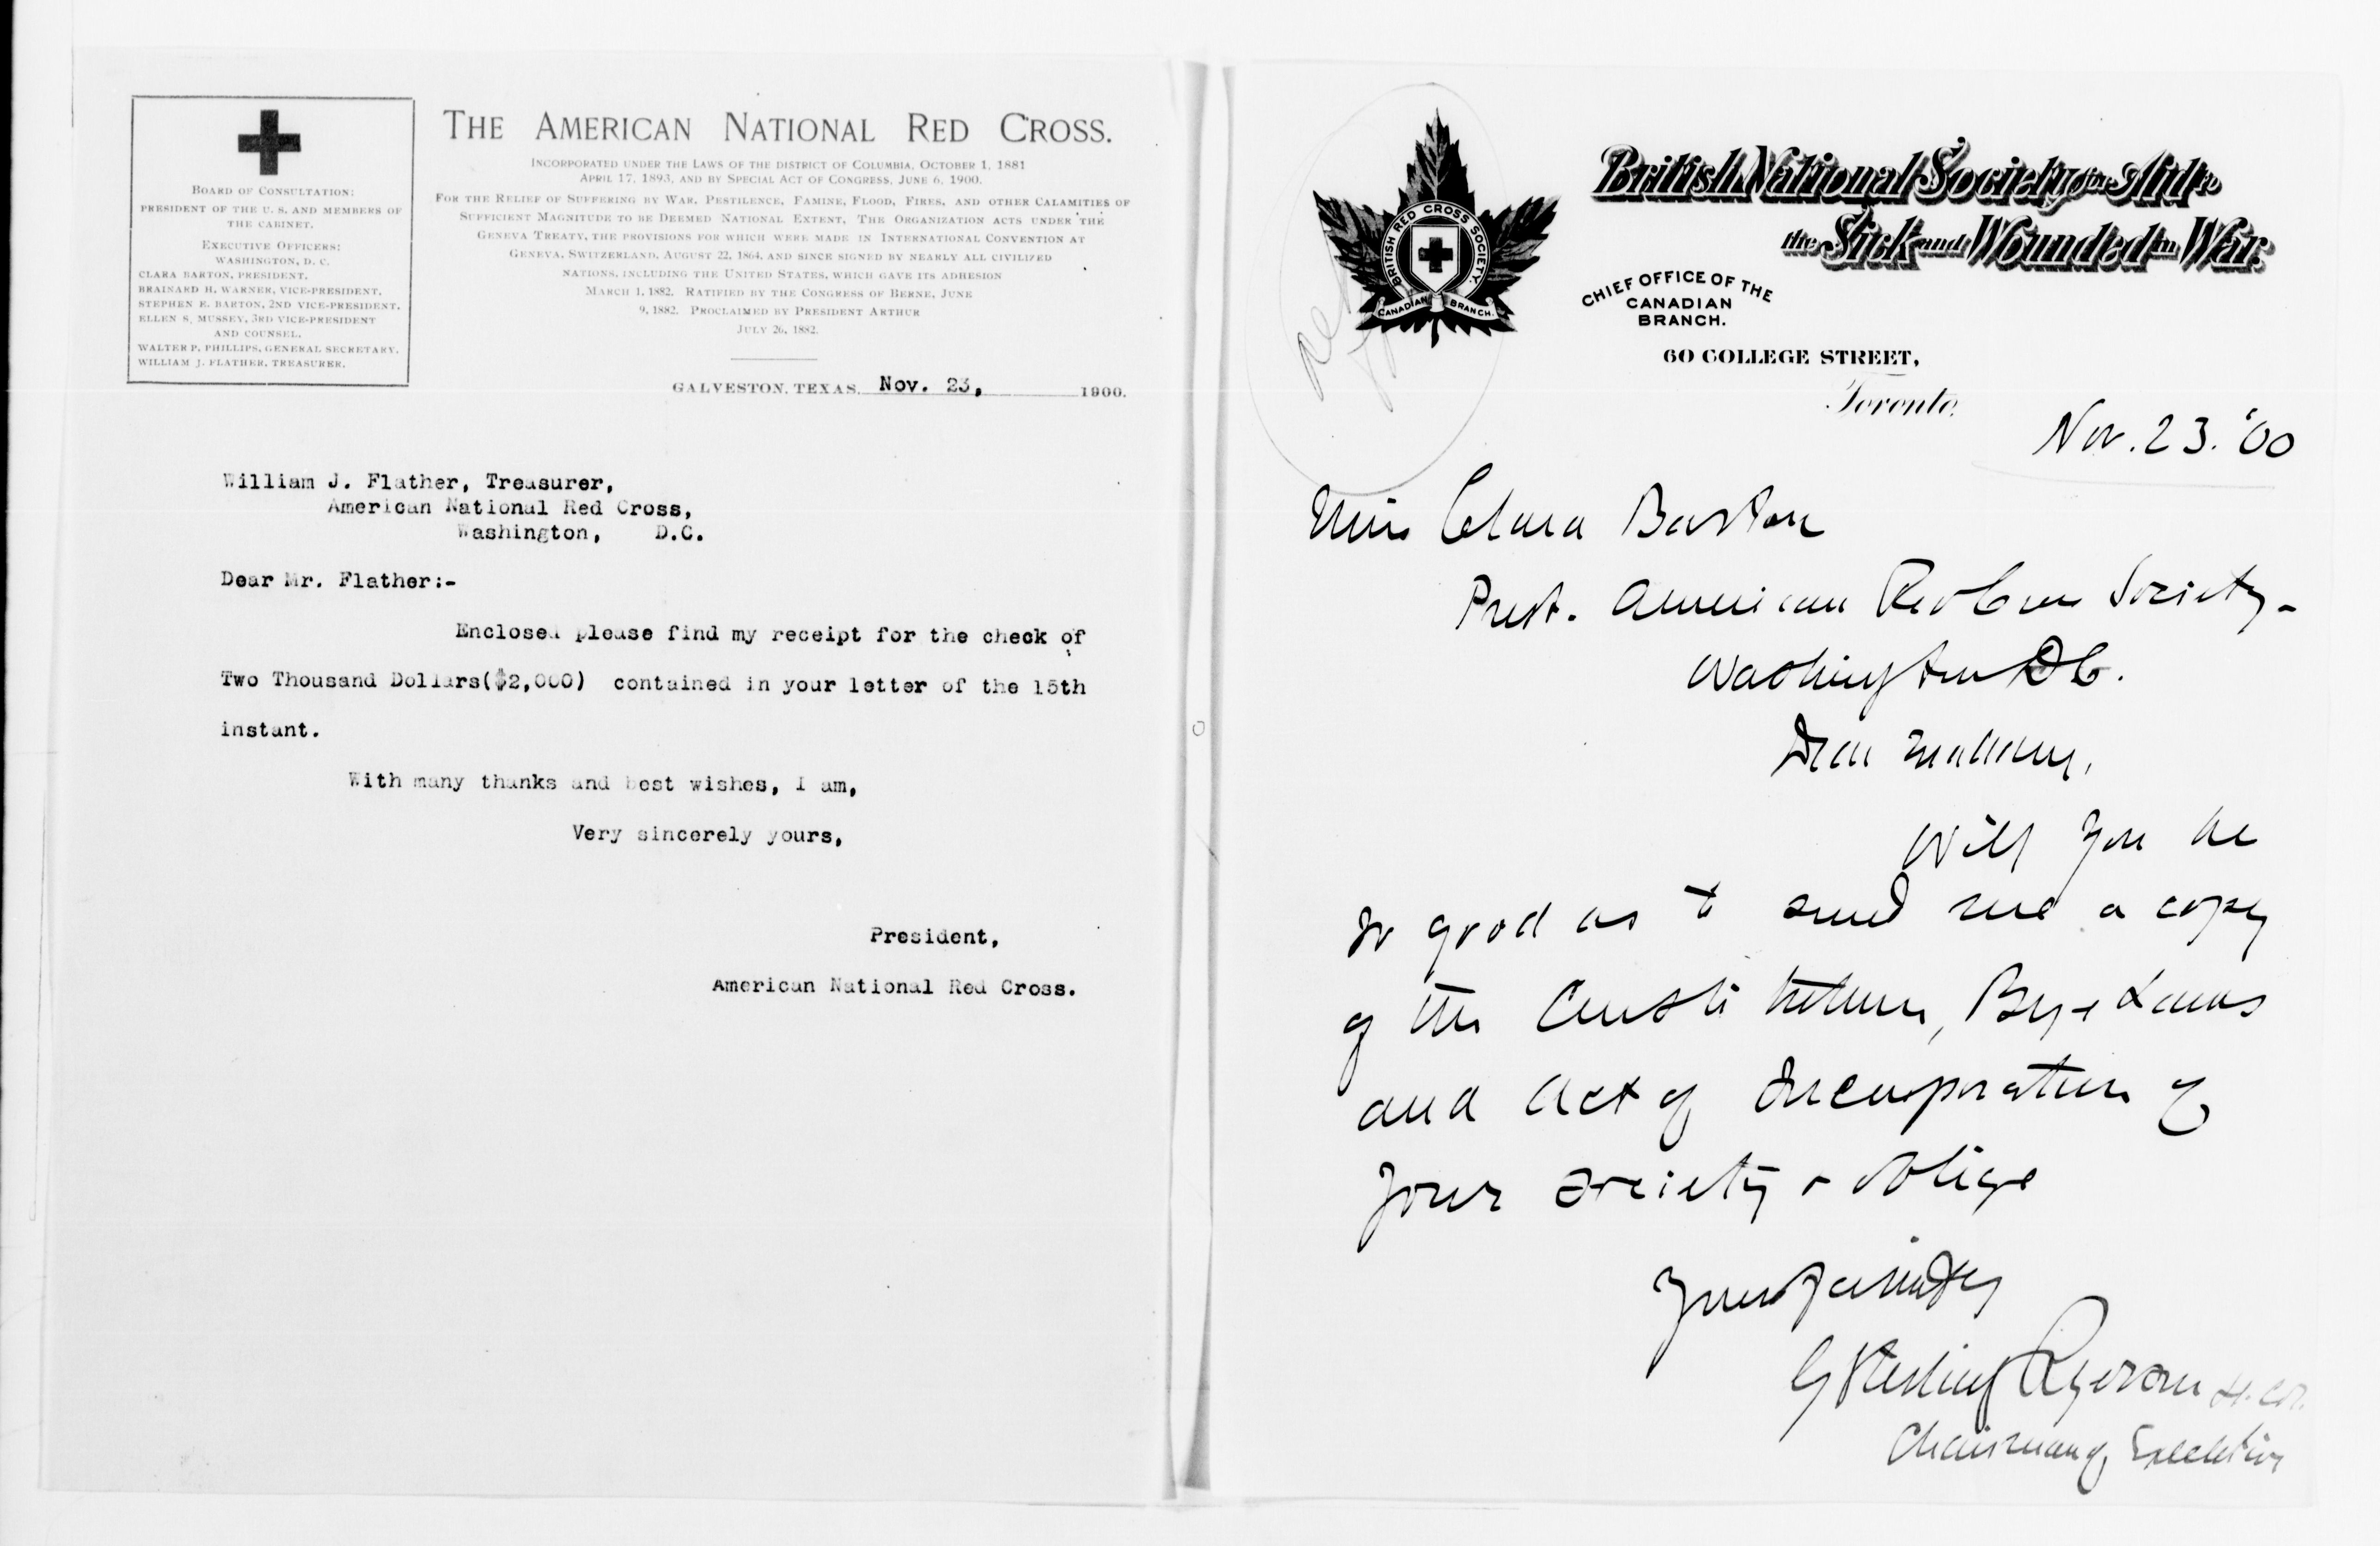 BOARD OF CONSULTATION:
PRESIDENT OF THE U. S. AND MEMBERS OF
THE CABINET.
EXECUTIVE OFFICERS:
WASHINGTON, D. C.
CLARA BARTON, PRESIDENT.
BRAINARD H. WARNER, VICE-PRESIDENT.
STEPHEN E. BARTON, 2ND VICE-PRESIDENT.
ELLEN S. MUSSEY, 3RD VICE-PRESIDENT
AND COUNSEL.
WALTER P. PHILLIPS, GENERAL SECRETARY.
WILLIAM J. FLATHER, TREASURER.
THE AMERICAN NATIONAL RED CROSS.
INCORPORATED UNDER THE LAWS OF THE DISTRICT OF COLUMBIA, OCTOBER 1, 1881
APRIL 17, 1893, AND BY SPECIAL ACT OF CONGRESS, JUNE 6, 1900.
FOR THE RELIEF OF SUFFERING BY WAR, PESTILENCE, FAMINE, FLOOD, FIRES, AND OTHER CALAMITIES OF
SUFFICIENT MAGNITUDE TO BE DEEMED NATIONAL EXTENT. THE ORGANIZATION ACTS UNDER THE
GENEVA TREATY, THE PROVISIONS FOR WHICH WERE MADE IN INTERNATIONAL CONVENTION AT
GENEVA, SWITZERLAND, AUGUST 22, 1864, AND SINCE SIGNED BY NEARLY ALL CIVILIZED
NATIONS, INCLUDING THE UNITED STATES, WHICH GAVE ITS ADHESION
MARCH 1, 1882. RATIFIED BY THE CONGRESS OF BERNE, JUNE
9, 1882. PROCLAIMED BY PRESIDENT ARTHUR
JULY 26, 1882.
GALVESTON, TEXAS, Nov. 23, 1900.
William J. Flather, Treasurer,
American National Red Cross,
Washington, D.C.
Dear Mr. Flather:-
Enclosed please find my receipt for the check of
Two Thousand Dollars($2,000) contained in your letter of the 15th
instant.
With many thanks and best wishes, I am,
Very sincerely yours,
President,
American National Red Cross.
BRITISH RED CROSS SOCIETY.
CANADIAN BRANCH.
British National Society for Aid to
the Sick and Wounded in War.
CHIEF OFFICE OF THE
CANADIAN
BRANCH.
60 COLLEGE STREET,
Toronto,
Nov. 23. '00
Miss Clara Barton
Prest. American Red Cross Society-
Washington DC.
Dear Madam,
Will you be
so good as to send me a copy
of the Constitution, Bye Laws
and Act of Incorporation of
your Society & oblige
Yours faithfully
G Sterling Ryerson
Chairman of Executive